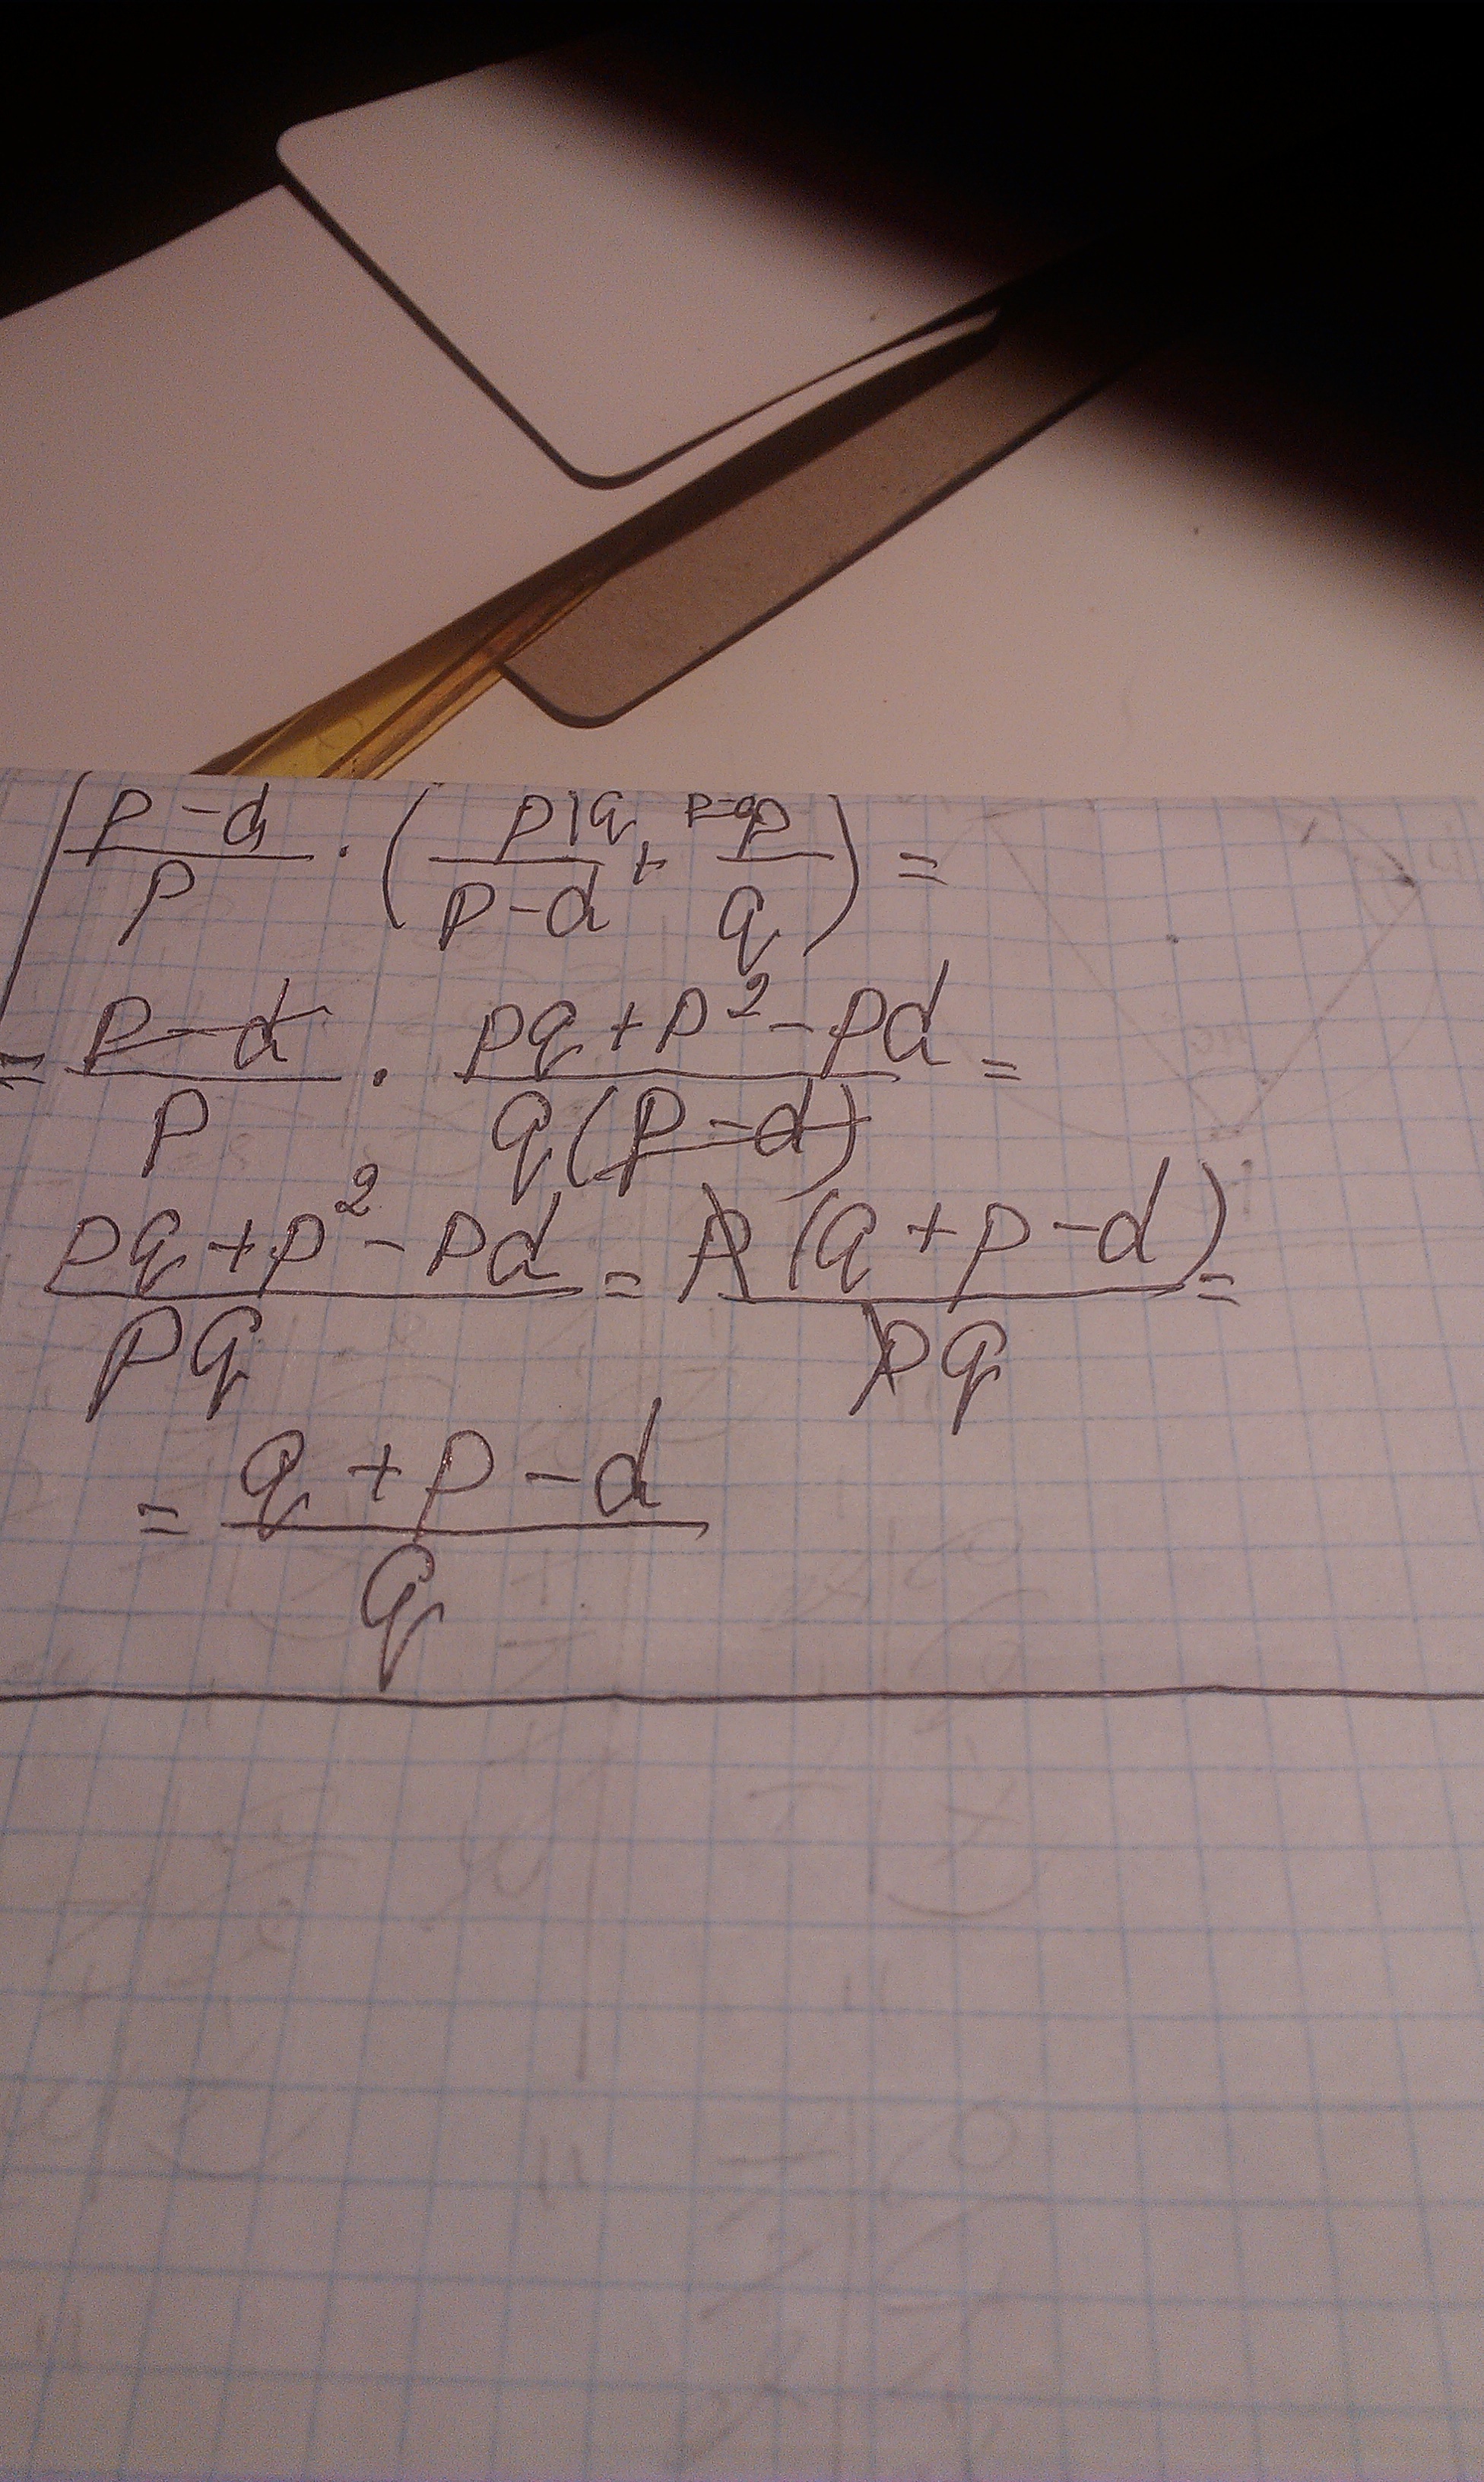 (p-d)/p · (p\q/(p-d) + p-d\p/q) =
= (p-d)/p · (pq+p²-pd)/(q(p-d)) =
(pq+p²-pd)/(pq) = (p(q+p-d))/(pq) =
= (q+p-d)/q